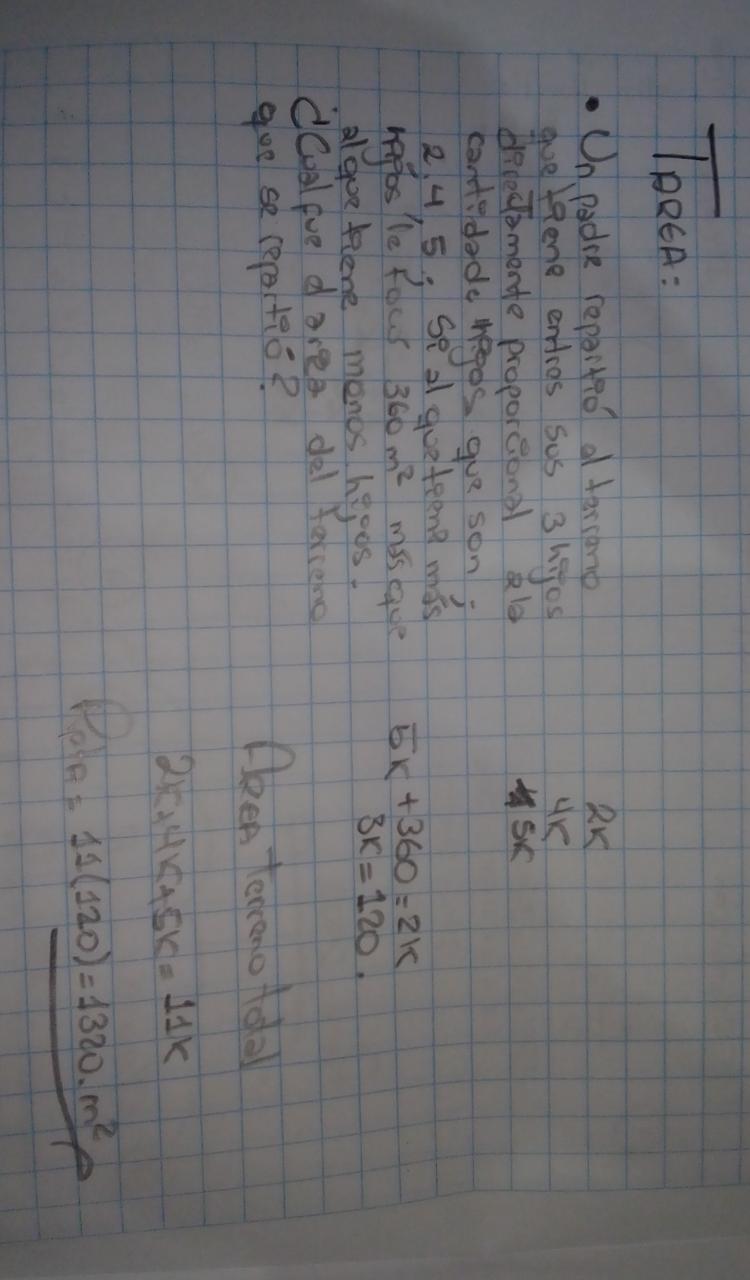 TAREA:
• Un padre repartió el terreno
que tiene entros sus 3 hijos
directamente proporcional a la
cantidade hijos que son :
2, 4, 5 ; Si al que tiene más
hijos le tocó 360 m² más que
al que tiene menos hijos.
¿Cual fue el area del terreno
que se repartió?
2K
4K
5K
5K + 360 = 2K
3K = 120.
AREA terreno total
2K+4K+5K = 11K
Rpta = 11(120) = 1320.m²